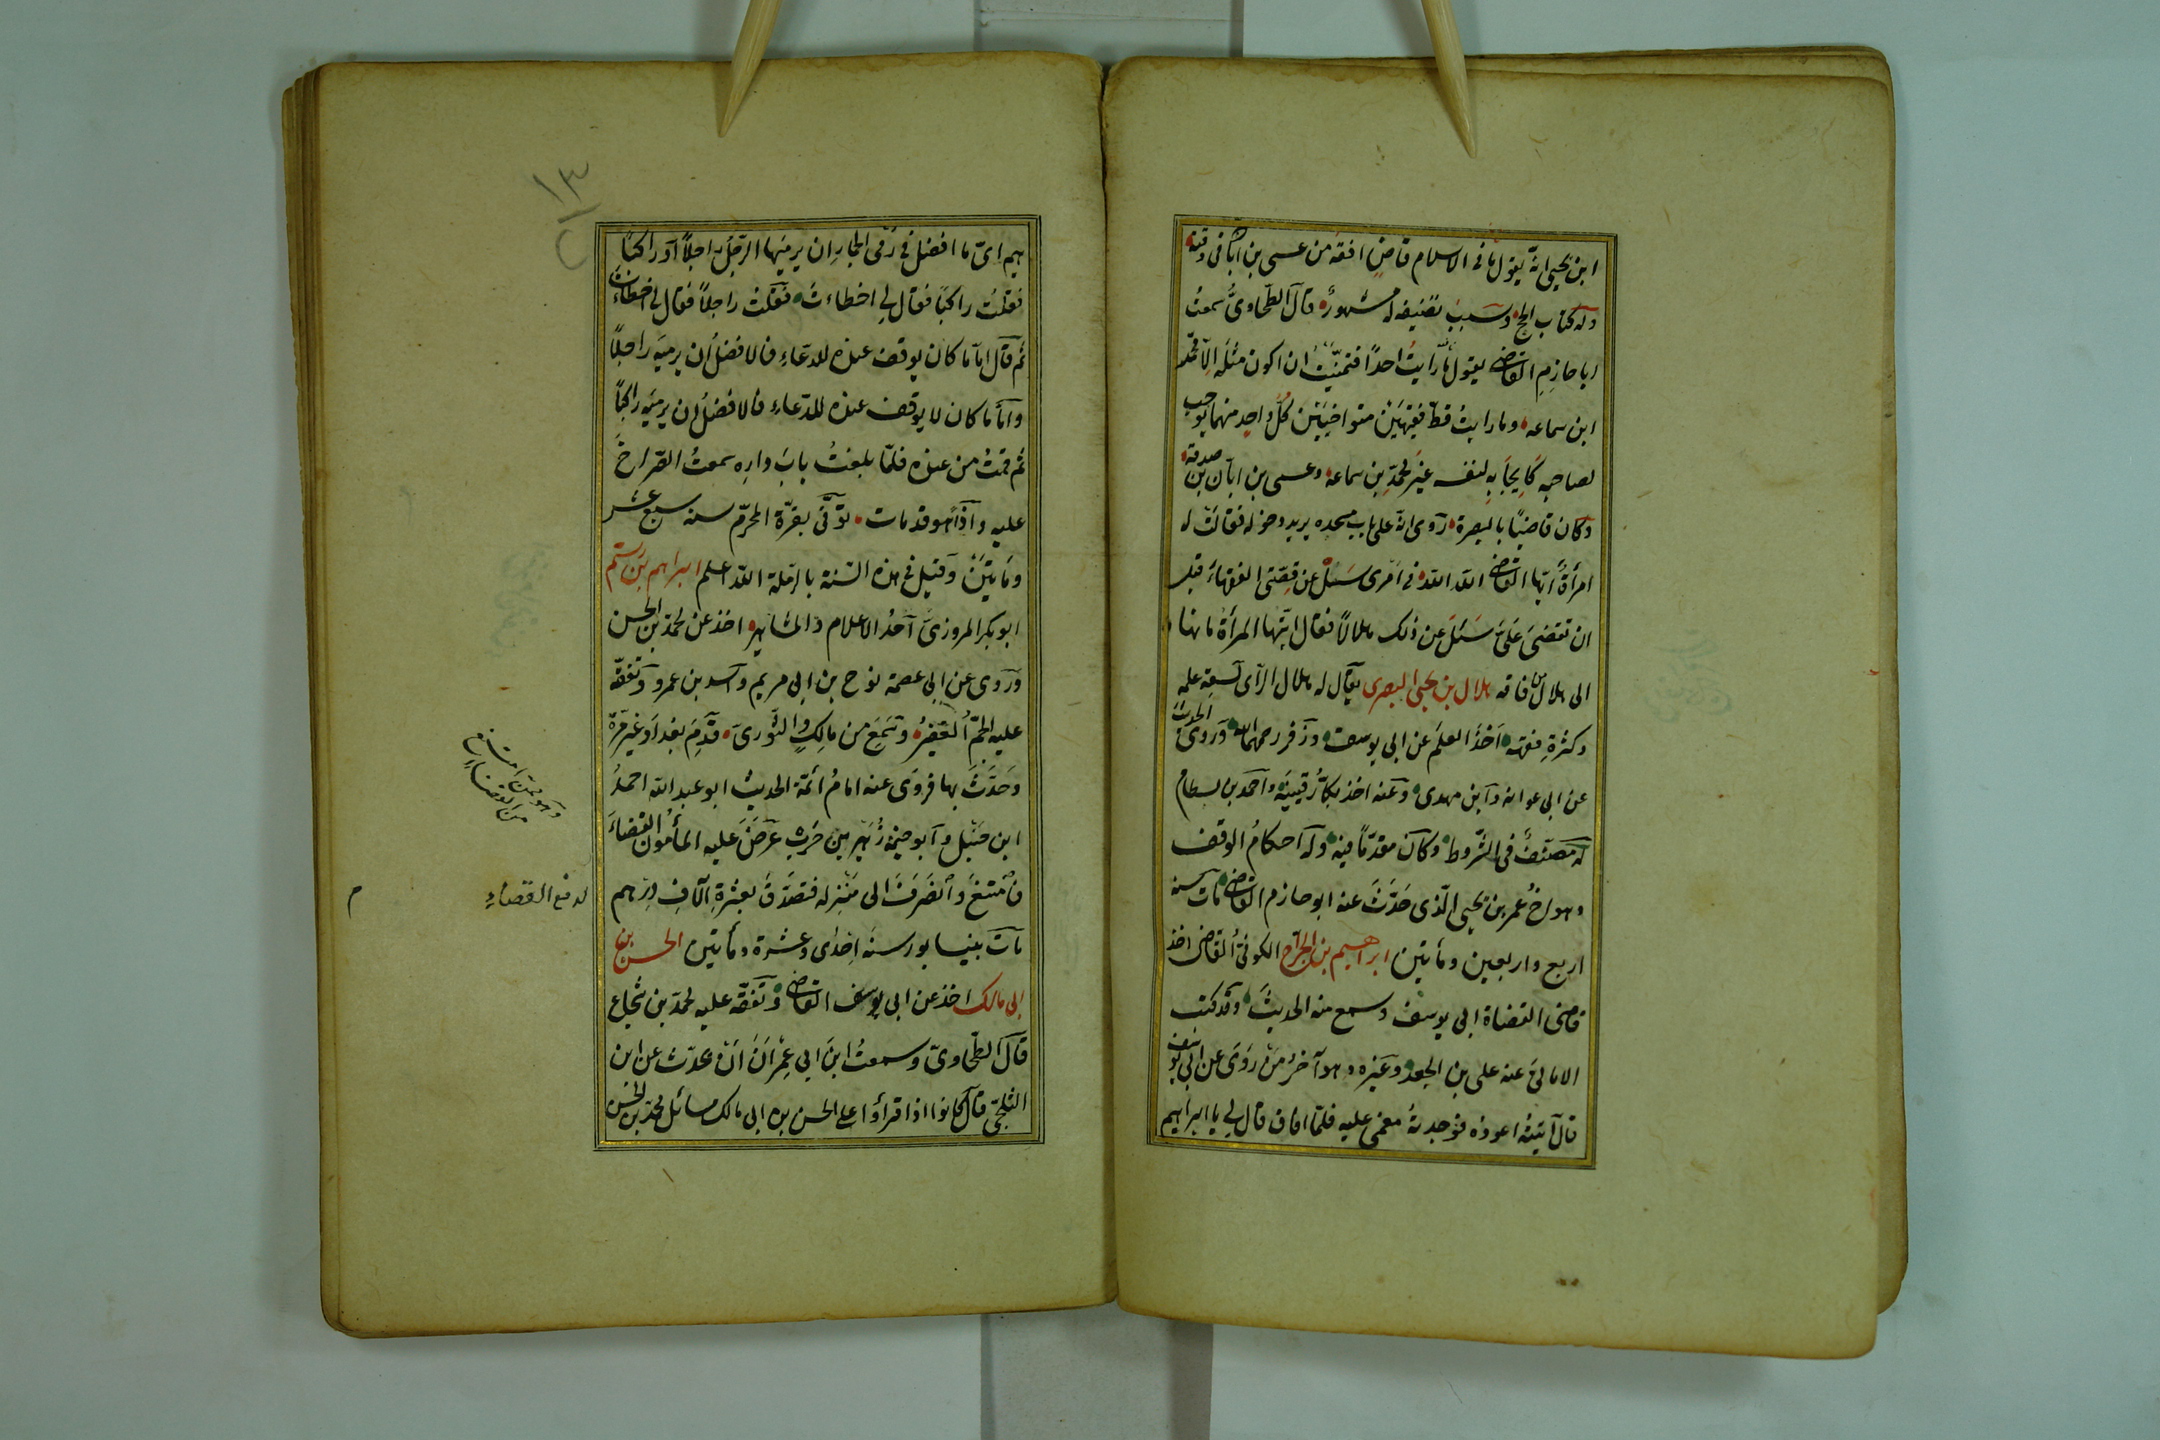 ابن يحيى انه يقول ما فى الاسلام قاضٍ افقه من عيسى بن ابان فى وقته
وله كتاب الحج وسبب تصنيفه له مشهورٌ قال الطحاوىُّ سمعتُ
ابا حازمِ القاضى يقول ما رايتُ احدًا فتمنّيتُ ان اكون مثله الّا محمد
ابن سماعه وما رايتُ قطّ فقيهَيْن متواخيَيْن كُلُّ واحدٍ منهما يوجب
لصاحبه كايجابه لنفسه غيرَ محمّد بن سماعة وعيسى بن ابان بن صدقة
وكان قاضيًا بالبصرة روى انه على باب مسجده يريد دخوله فقالت له
امرأةٌ ايّها القاضى الله الله فى امرى سَئل عن قصّتى الفقهاءَ قبل
ان تقضىَ عَلَىَّ سَئل عن ذلك هلالاً فقال ايّتها المرأة ما بنا
الى هلال من فاقه هلال بن يحيى البصرى يقال له هلال الرأى لسعة علمه
وكثرةِ فقهه اَخَذَ العلمَ عن ابى يوسف وزفر رحمهما الله وروى الحديث
عن ابى عوانه وابن مهدى وعنه اخذ بكّار قيبيه واحمد بن بسطام
له مصنّفٌ فى الشّروط وكان مقدّمًا فيه وله احكامُ الوقف
وهو اخُ عمر بن يحيى الّذى حَدَّثَ عنه ابو حازم القاضى مات سنه
اربع واربعين ومأتين ابراهيم بن الجرّاح الكوفىُّ القاضى اخذ
قاضى القضاة ابى يوسف وسمع منه الحديثَ وقد كتب
الامالىَ عنه على بن الجعد وغيره وهو آخرُ مَنْ رَوَى عن ابى يوسف
قال آتيته اعوده فوجدته مغمى عليه فلمّا افاق قال لى يا ابراهيم
١٣
هيم اىّ ما افضل فى رمى الجمارِ ان يرميها الرّجل راجلًا او راكبًا
فقلتُ راكبًا فقال لِى اخطاءتُ فقلت راجلاً فقال لى اخطاتَ
ثم قال امّا ما كان يوقف عنده للدعاءِ فالافضلُ ان يرميَه راجلًا
وامّا ما كان لا يوقف عنده للدّعاءِ فالافضلُ ان يرميَه راكبًا
ثم قمتُ من عنده فلمّا بلغتُ بابَ داره سمعتُ الصّراخَ
عليه واذا هو قد مات توفّى بغرّة المحرّم سنه سبع عشر
ومأيتين وقتيل فى هذه السّنة بالرّملة الله اعلم ابراهيم بن رستم
ابو بكر المروزىّ آحدُ الاعلام ذ المشاهير اخذ عن محمّد بن الحسن
وروى عن ابى عصمة نوح بن ابى مريم واسد بن عمرو وتفقّه
عليه الجمّ الغفيرُ وسَمِعَ من مالكٍ والثّورىّ قدم بغداد غير مرّة
وحَدَّثَ بها فروى عنه امامُ ائمّة الحديث ابو عبد الله احمدُ
ابن حنبل وابو خيثمة زُهَير بن حَرْب عَرَضَ عليه المأمون القضاءَ
فامتنعَ وانصَرَفَ الى منْزله فتصدّقَ بعشرةِ آلافِ درهم
مات بنيسابور سنةَ اِحْدَى وعشرة ومأيتين الحسن بن
ابى مالك اخذ عن ابى يوسف القاضى وتفقّه عليه محمّد بن شجاع
قال الطّحاوىّ وسمعتُ ابنَ ابى عِمْرانَ اَنّه يحدّث عن ابن
الثلجى قال كانوا اذا قرأوا على الحسن بن ابى مالك مسائل محمّد بن الحسن
لدفع القضاءِ
م